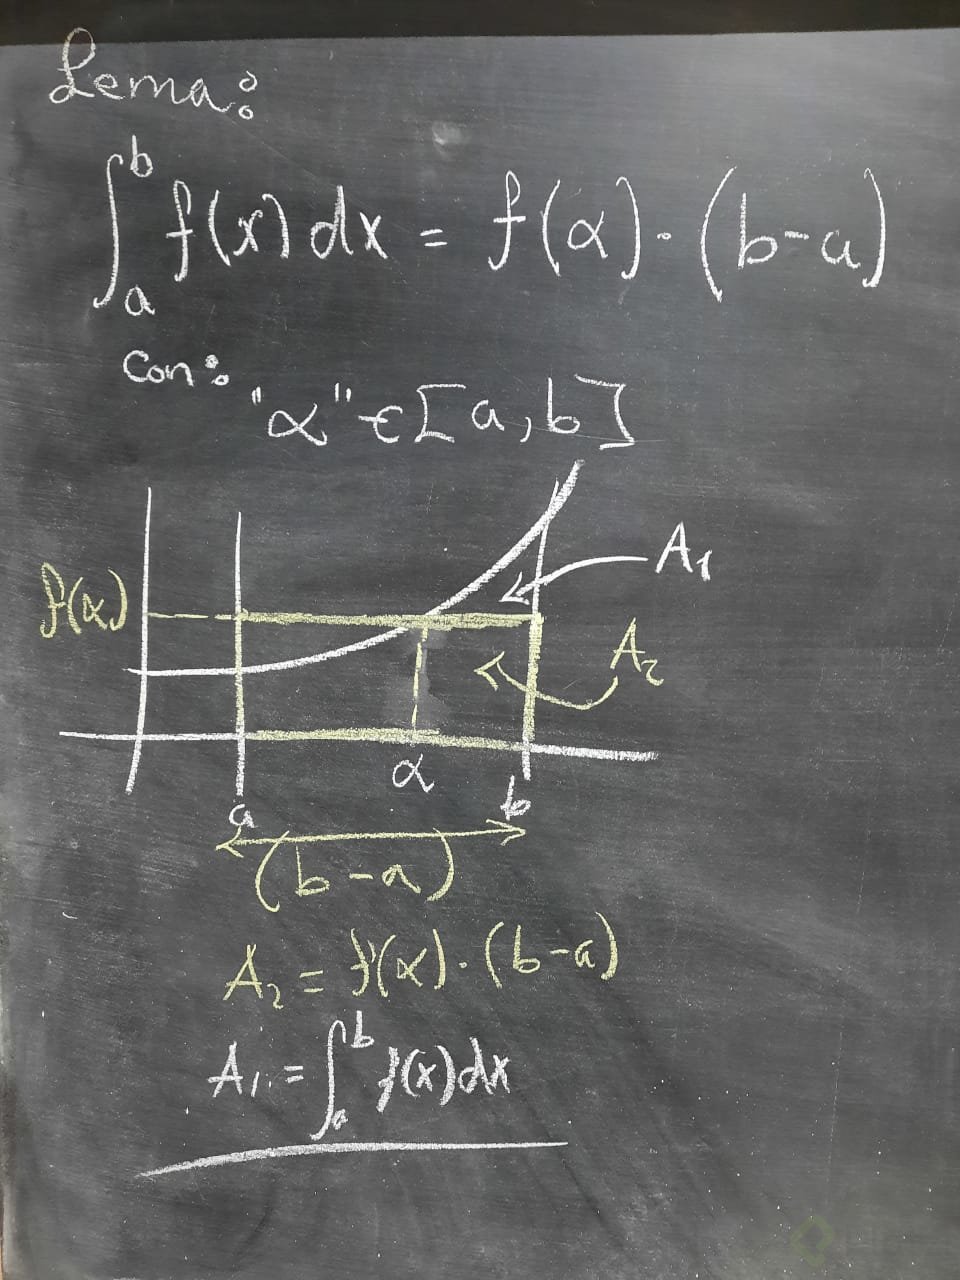 Lema:
∫ₐᵇ f(x) dx = f(α) · (b-a)
Con:
"α" ∈ [a, b]
A₁
f(α)
A₂
α
a b
(b-a)
A₂ = f(α) · (b-a)
A₁ = ∫ₐᵇ f(x) dx